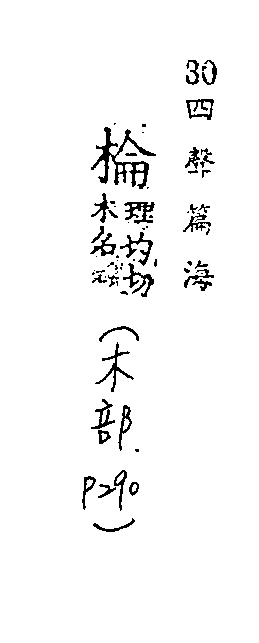 30四聲篇海
棆
理均切
木名
(木部
P290)